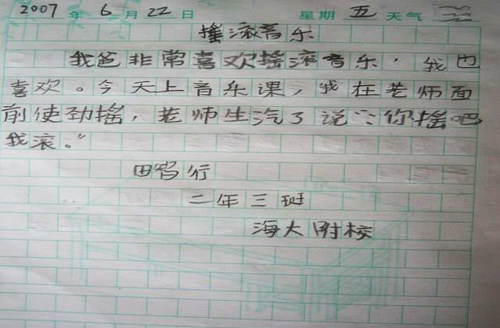 2007 年 6 月 22 日 星期 五 天气
摇滚音乐
我爸非常喜欢摇滚音乐，我也
喜欢。今天上音乐课，我在老师面
前使劲摇，老师生汽了说：“你摇吧
我滚。”
田智行
二年三班
海大附校